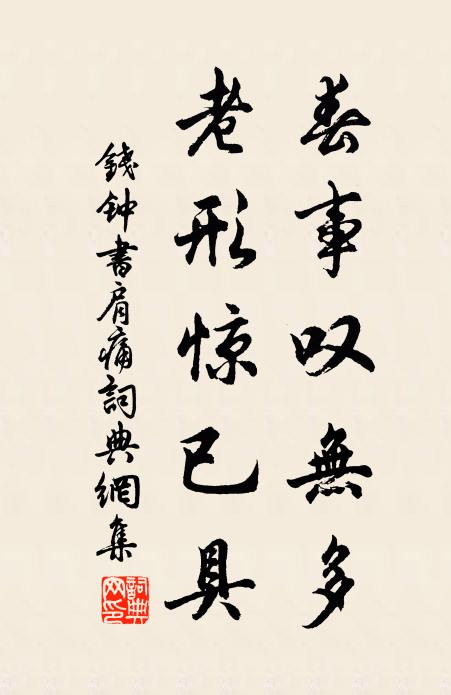 春事叹無多
老形惊已具
錢钟書肩痛詞典網集
詞典网印